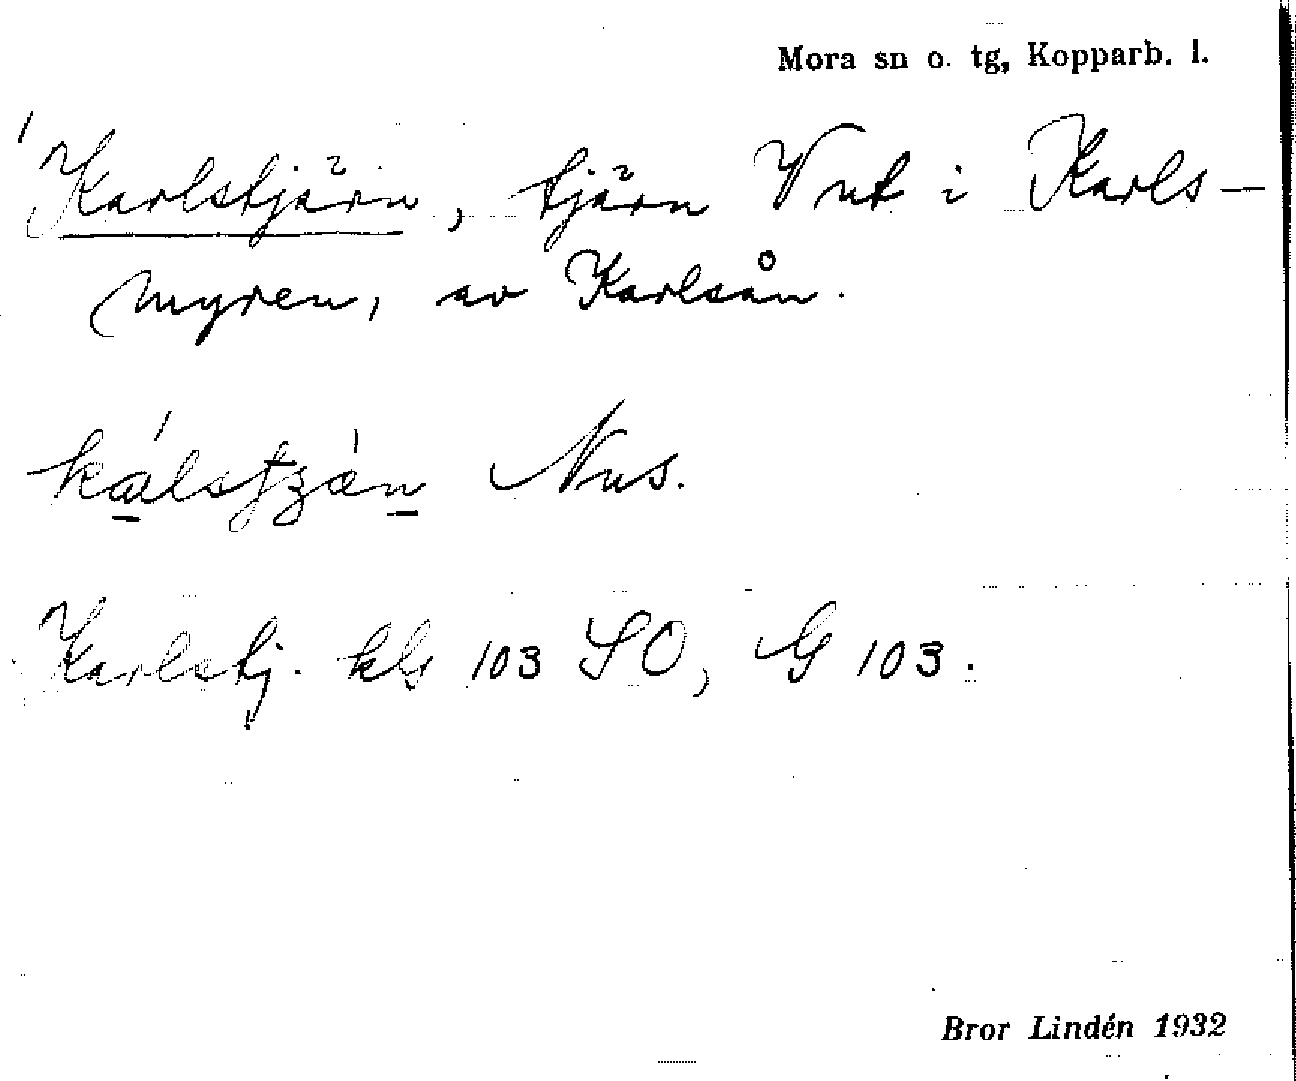 Mora sn o. tg, Kopparb. l.
Karlstjärn, tjärn Vut i Karls-
myren, av Karlsån.
Nus.
Karlstj. kls 103 SO, G 103.
Bror Lindén 1932